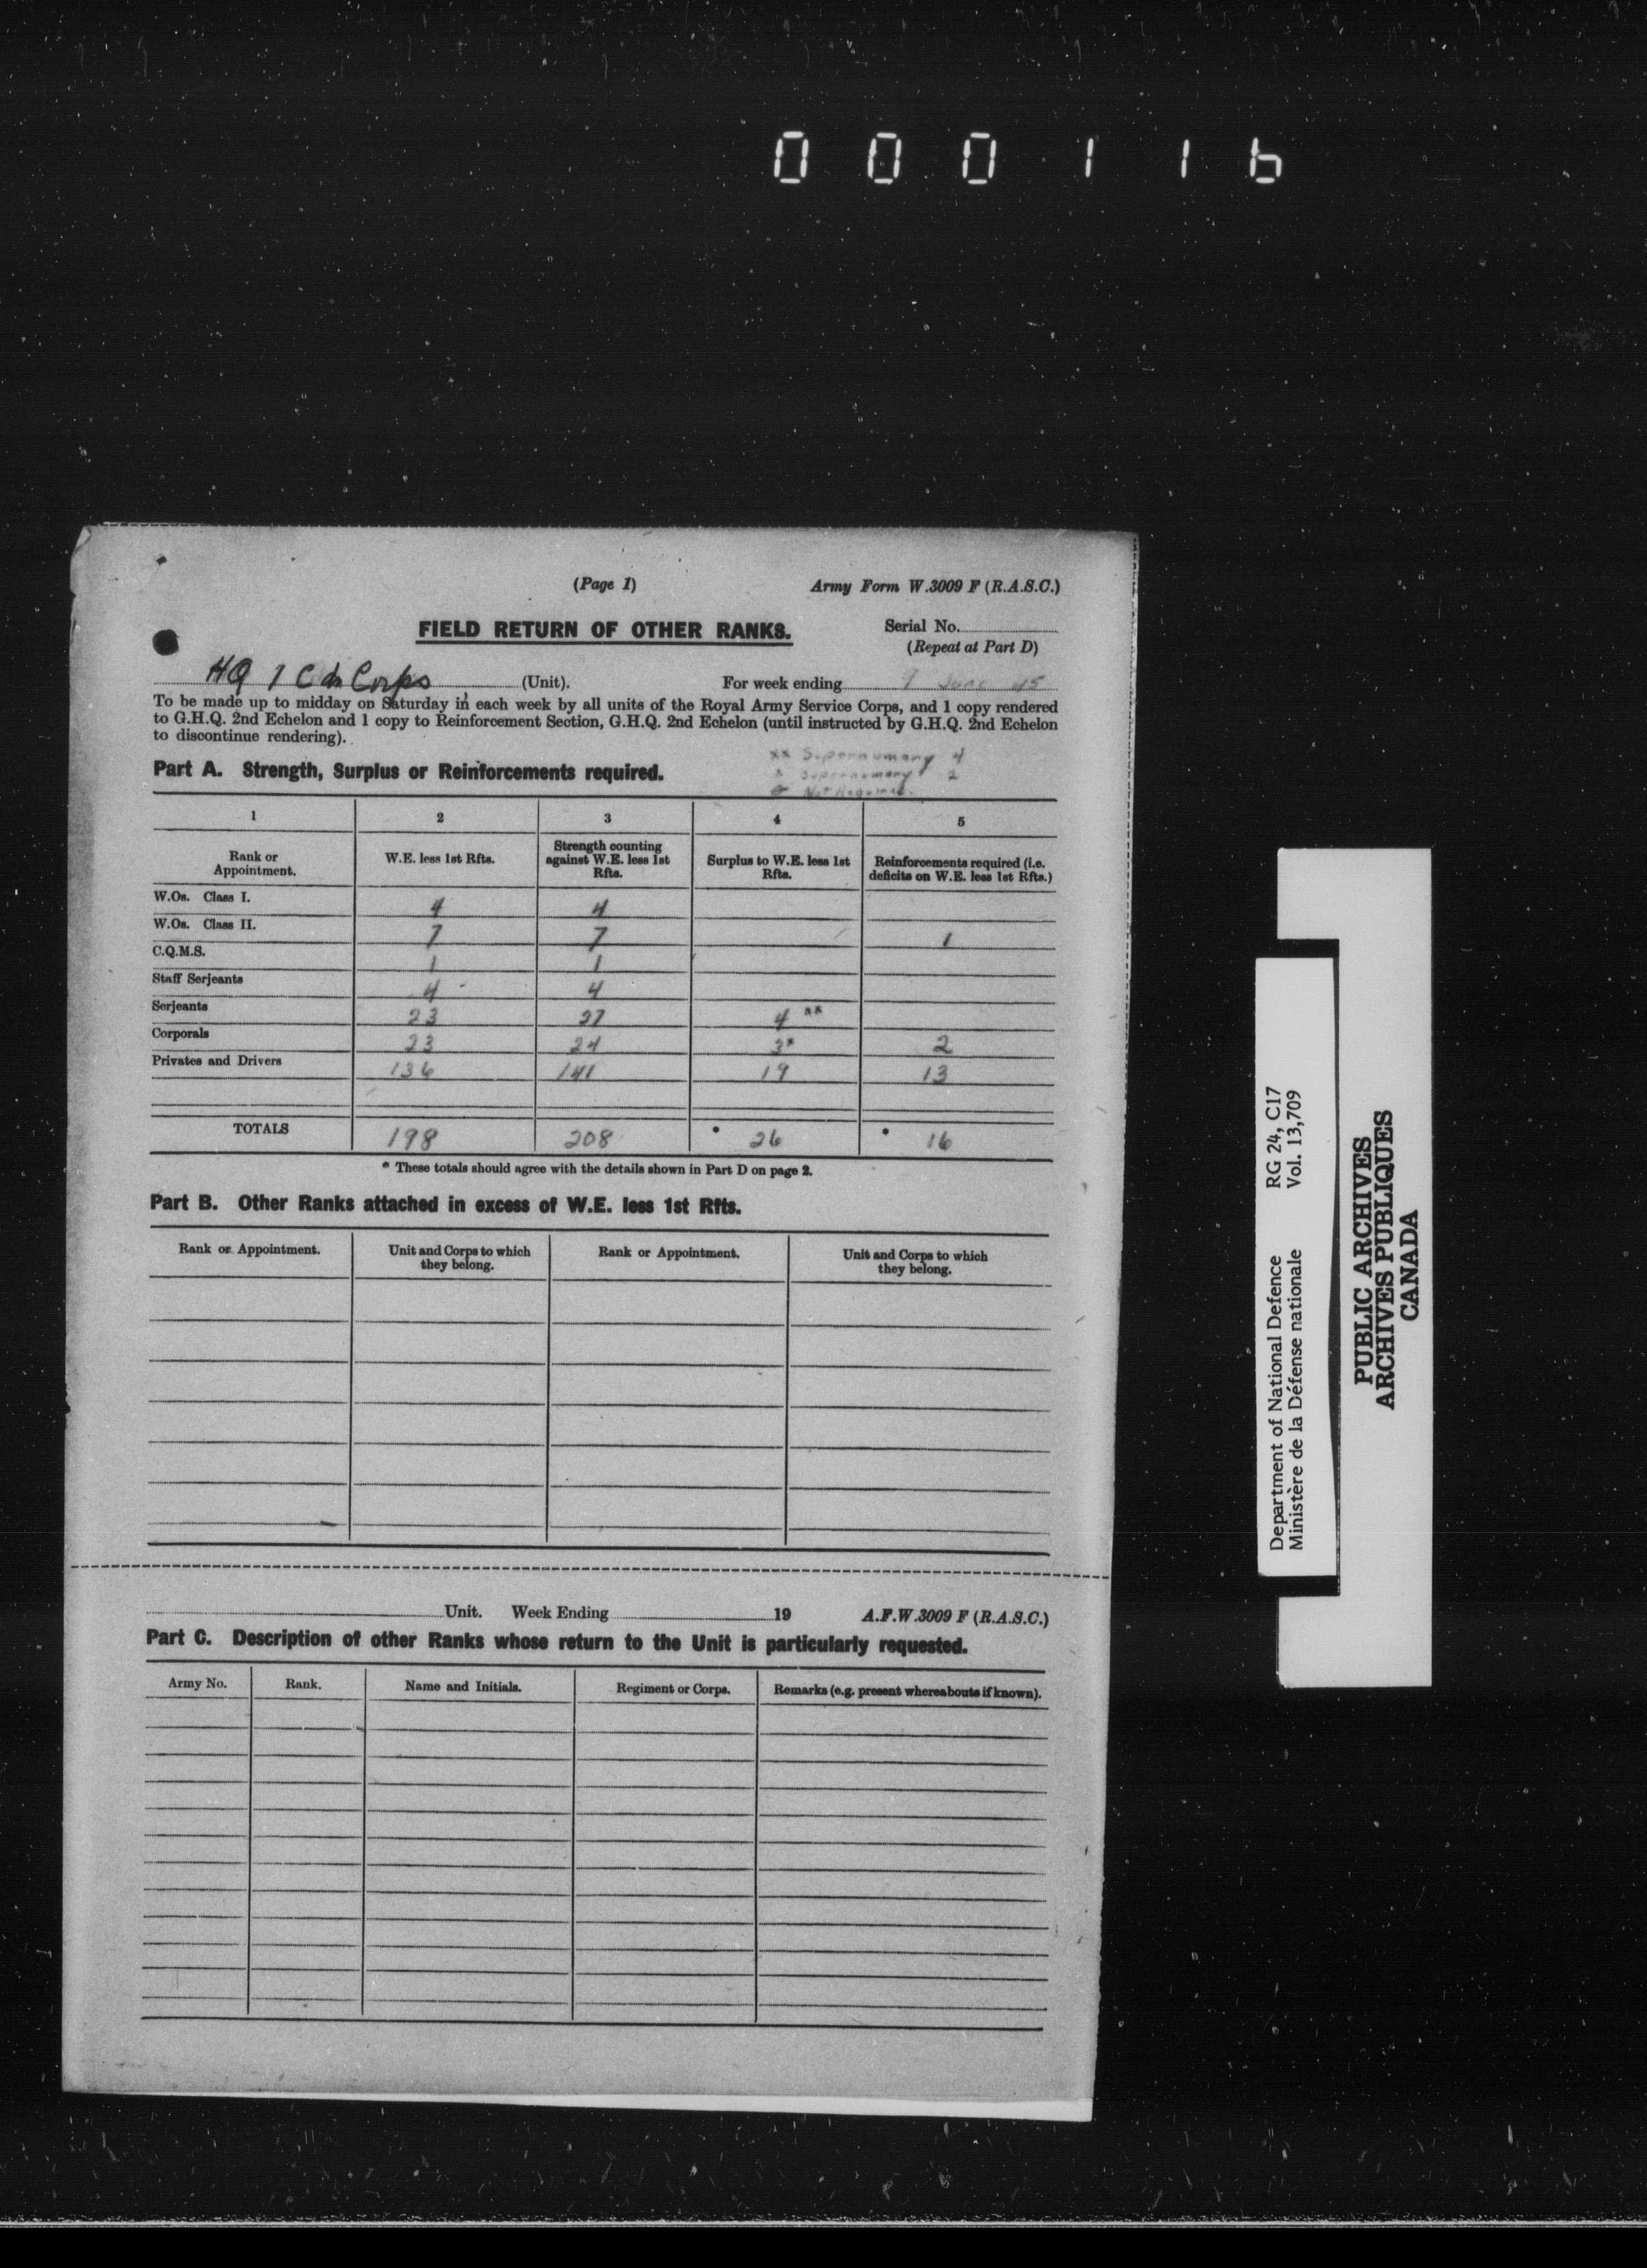 000116
(Page 1) Army Form W.3009 F (R.A.S.C.)
FIELD RETURN OF OTHER RANKS.
Serial No.
(Repeat at Part D)
HQ 1 Cdn Corps (Unit). For week ending 9 June 45
To be made up to midday on Saturday in each week by all units of the Royal Army Service Corps, and 1 copy rendered
to G.H.Q. 2nd Echelon and 1 copy to Reinforcement Section, G.H.Q. 2nd Echelon (until instructed by G.H.Q. 2nd Echelon
to discontinue rendering).
xx Supernumary 4
x Supernumary 2
Not Required.
Part A. Strength, Surplus or Reinforcements required.
1 2 3 4 5
Rank or Appointment. W.E. less 1st Rfts. Strength counting against W.E. less 1st Rfts. Surplus to W.E. less 1st Rfts. Reinforcements required (i.e. deficits on W.E. less 1st Rfts.)
W.Os. Class I. 4 4
W.Os. Class II. 7 7 1
C.Q.M.S. 1 1
Staff Serjeants 4 4
Serjeants 23 27 4 xx
Corporals 23 24 3x 2
Privates and Drivers 136 141 19 13
TOTALS 198 208 * 26 * 16
* These totals should agree with the details shown in Part D on page 2.
Part B. Other Ranks attached in excess of W.E. less 1st Rfts.
Rank or Appointment. Unit and Corps to which they belong. Rank or Appointment. Unit and Corps to which they belong.
Unit. Week Ending 19 A.F.W.3009 F (R.A.S.C.)
Part C. Description of other Ranks whose return to the Unit is particularly requested.
Army No. Rank. Name and Initials. Regiment or Corps. Remarks (e.g. present whereabouts if known).
Department of National Defence RG 24, C17
Ministère de la Défense nationale Vol. 13,709
PUBLIC ARCHIVES
ARCHIVES PUBLIQUES
CANADA